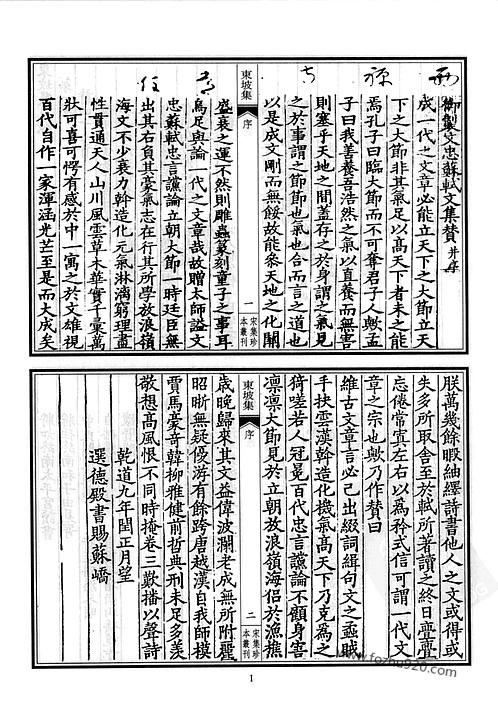 御製文忠蘇軾文集贊并序
成一代之文章必能立天下之大節立天
下之大節非其氣足以高天下者未之能
焉孔子曰臨大節而不可奪君子人歟孟
子曰我善養吾浩然之氣以直養而無害
則塞乎天地之間蓋存之於身謂之氣見
之於事謂之節節也氣也合而言之道也
以是成文剛而無餒故能參天地之化關
盛衰之運不然則雕蟲篆刻童子之事耳
烏足與論一代之文章哉故贈太師謚文
忠蘇軾忠言讜論立朝大節一時廷臣無
出其右負其豪氣志在行其所學放浪嶺
海文不少衰力斡造化元氣淋漓窮理盡
性貫通天人山川風雲草木華實千彙萬
狀可喜可愕有感於中一寓之於文雄視
百代自作一家渾涵光芒至是而大成矣
東坡集
序
一
宋集珍
本叢刊
朕萬幾餘暇紬繹詩書他人之文或得或
失多所取舍至於軾所著讀之終日亹亹
忘倦常寘左右以為矜式信可謂一代文
章之宗也歟乃作贊曰
維古文章言必己出綴詞緝句文之蟊賊
手抉雲漢斡造化機氣高天下乃克為之
猗嗟若人冠冕百代忠言讜論不顧身害
凜凜大節見於立朝放浪嶺海侶於漁樵
歲晚歸來其文益偉波瀾老成無所附麗
昭晰無疑優游有餘跨唐越漢自我師模
賈馬豪奇韓柳雅健前哲典刑未足多羨
敬想高風恨不同時掩卷三歎播以聲詩
乾道九年閏正月望
選德殿書賜蘇嶠
東坡集
序
二
宋集珍
本叢刊
1
www.fozhu920.com